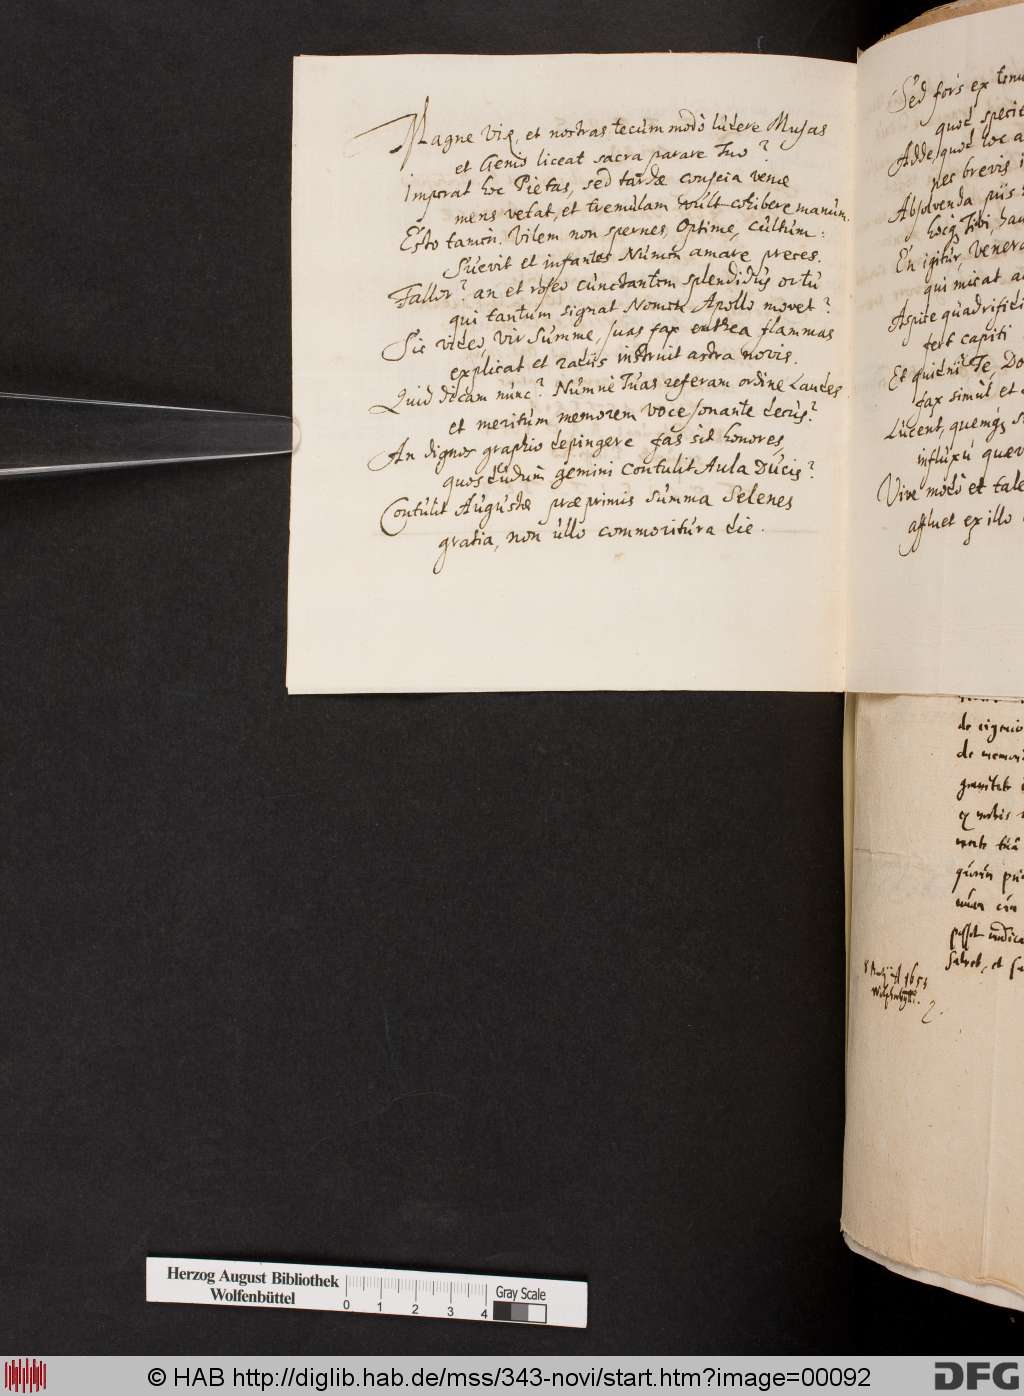 Magne Vir, et nostras tecum modò ludere Musas
et Genio liceat sacra parare Tuo?
Imperat hoc Pietas, sed tardæ conscia venæ
mens vetat, et tremulam vult cohibere manum.
Esto tamen. Vilem non spernes, Optime, cultum:
Suevit et infantes Numen amare preces.
Fallor? an et roseo cunctantem splendidus ortu
qui tantum signat Nomen Apollo movet?
Sic video, Vir Summe, suas fax enthea flammas
explicat et radiis instruit astra novis.
Quid dicam nunc? Numne Tuas referam ordine Laudes
et meritum memorem voce sonante decus?
An dignos graphio depingere fas sit honores,
quos dudum gemini contulit Aula Ducis?
Contulit Augustæ præprimis summa Selenes
gratia, non ullo commoritura die.
Sed fors ex tenu
quod specie
Adde, quod hoc a
nes brevis i
Absolvenda piis
hocq; Tibi, hau
En igitur, Venera
qui micat a
Aspice quadrifidi
fert capiti
Et quidnï Te, Do
fax simul et
Lucent, quemq; s
influxu quev
Vive modò et tale
affluet ex illo
de
de memor
gravitate
ex nobis
morte tuâ
possit
1653
Herzog August Bibliothek
Wolfenbüttel
0 1 2 3 4
Gray Scale
© HAB http://diglib.hab.de/mss/343-novi/start.htm?image=00092
DFG